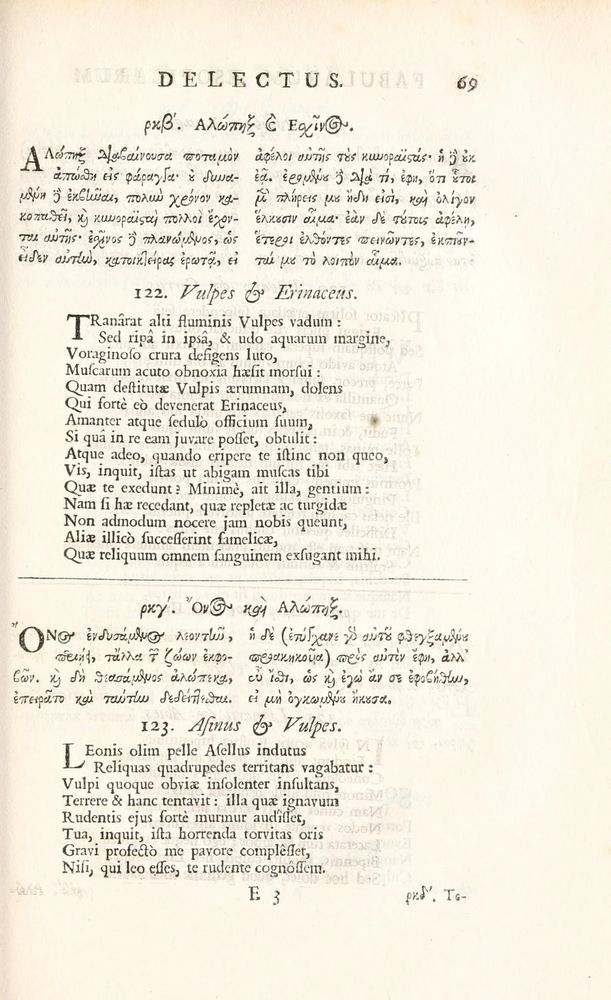 DELECTUS. 69
ρκβʹ. Αλώπηξ & Εχῖνος.
ΑΛώπηξ διαβαίνουσα ποταμὸν
ἀπώθη εἰς φάραγγα· ἐ δυνα-
μένη ἢ ἐκβῆναι, πολὺν χρόνον κα-
κοπαθεῖ, κ κυνοραῖσται πολλοὶ ἔχον-
ται αὐτῆς· ἐχῖνος ἢ πλανώμενος, ὡς
εἶδεν αὐτὴν, κατοικτείρας ἐρωτᾷ, εἰ
ἀφέλοι αὐτῆς τοὺς κυνοραϊστάς· ἡ ἢ οὐκ
ἐᾷ. ἐρομένου ἢ διὰ τί, ἔφη, ὅτι οὗτοι
μὲν πλήρεις μου ἤδη εἰσὶ, καὶ ὀλίγον
ἕλκουσιν αἷμα· ἐὰν δὲ τούτους ἀφέλῃ,
ἕτεροι ἐλθόντες πεινῶντες, ἐκπίον-
ταί μου τὸ λοιπὸν αἷμα.
122. Vulpes & Erinaceus.
TRanârat alti fluminis Vulpes vadum:
Sed ripâ in ipsâ, & udo aquarum margine,
Voraginoso crura defigens luto,
Muscarum acuto obnoxia hæsit morsui:
Quam destitutæ Vulpis ærumnam, dolens
Qui fortè eò devenerat Erinaceus,
Amanter atque sedulò officium suum,
Si quâ in re eam juvare posset, obtulit:
Atque adeo, quando eripere te istinc non queo,
Vis, inquit, istas ut abigam muscas tibi
Quæ te exedunt? Minimè, ait illa, gentium:
Nam si hæ recedant, quæ repletæ ac turgidæ
Non admodum nocere jam nobis queunt,
Aliæ illicò successerint famelicæ,
Quæ reliquum omnem sanguinem exsugant mihi.
ρκγʹ. Ὄνος καὶ Αλώπηξ.
ὌΝος ἐνδυσάμενος λεοντῆν,
περιῄει, τἄλλα τῶν ζώων ἐκφο-
βῶν. κ δὴ θεασάμενος ἀλώπεκα,
ἐπειρᾶτο καὶ ταύτην δεδίττεσθαι.
ἡ δὲ (ἐτύγχανε γὸ αὐτοῦ φθεγξαμένου
προακηκουῖα) πρὸς αὐτὸν ἔφη, ἀλλ᾽
εὖ ἴσθι, ὡς κ ἐγὼ ἄν σε ἐφοβήθην,
εἰ μὴ ὀγκωμένου ἤκουσα.
123. Asinus & Vulpes.
LEonis olim pelle Asellus indutus
Reliquas quadrupedes territans vagabatur:
Vulpi quoque obviæ insolenter insultans,
Terrere & hanc tentavit: illa quæ ignavum
Rudentis ejus fortè murmur audîsset,
Tua, inquit, ista horrenda torvitas oris
Gravi profectò me pavore complêsset,
Nisi, qui leo esses, te rudente cognôssem.
E 3 ρκδʹ. Το-